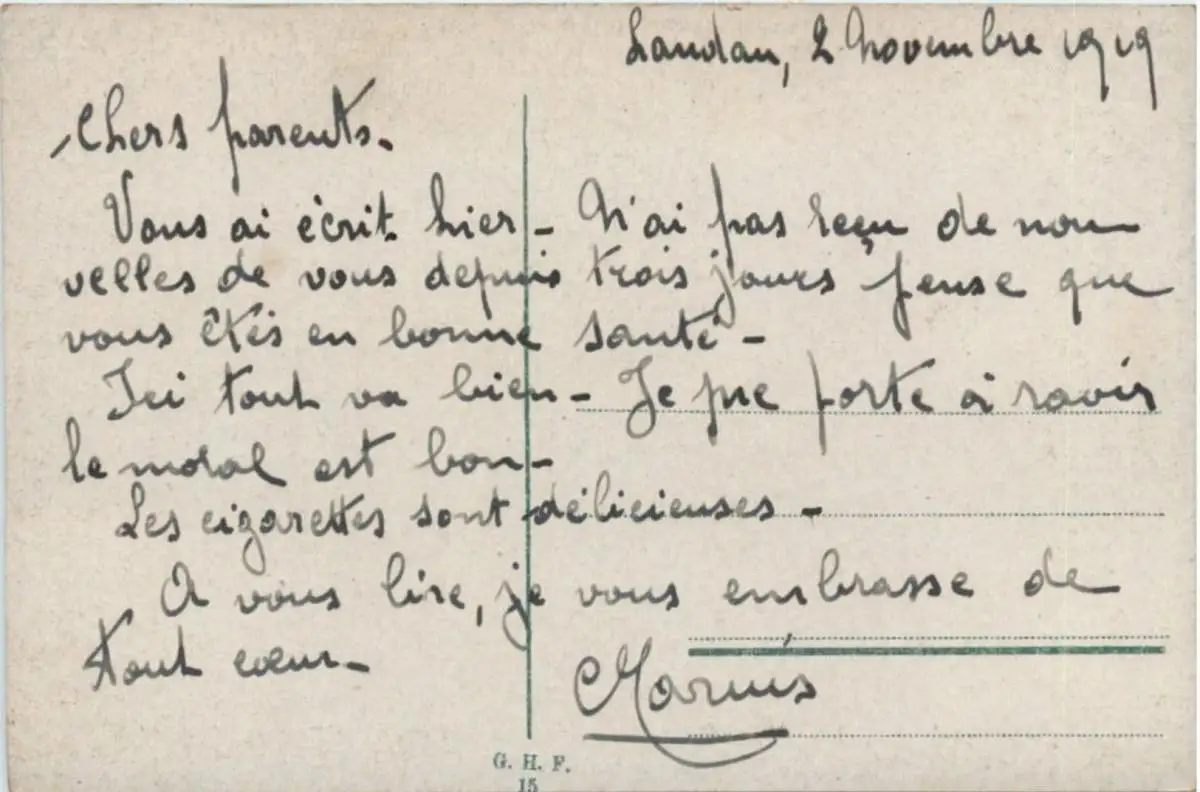 Landau, 2 Novembre 1919
Chers parents.
Vous ai écrit hier - N'ai pas reçu de nou
velles de vous depuis trois jours pense que
vous êtés en bonne santé -
Ici tout va bien - Je me porte à ravir
le moral est bon -
Les cigarettes sont délicieuses -
A vous lire, je vous embrasse de
tout cœur -
Marius
G. H. F.
15